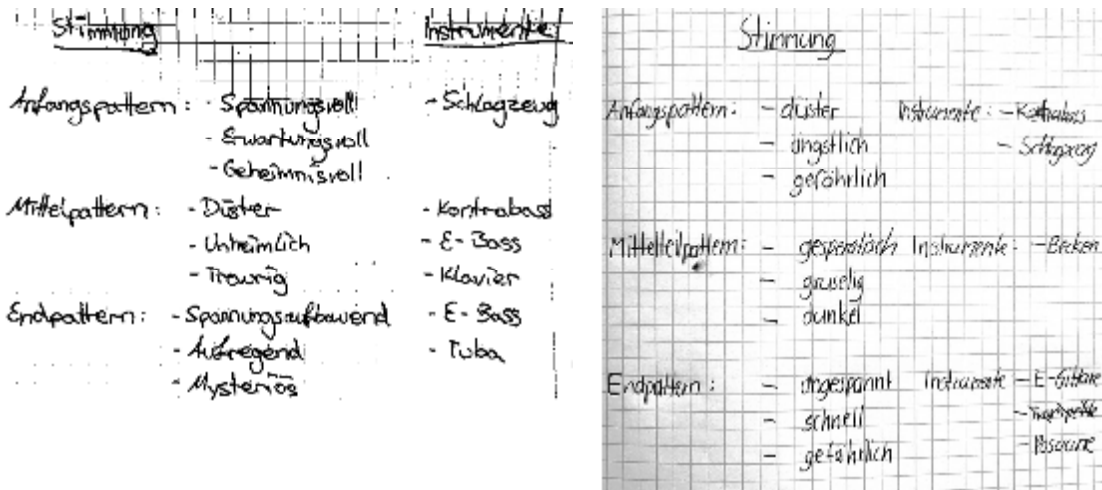 Stimmung Instrumente
Anfangspattern: - Spannungsvoll - Schlagzeug
- Erwartungsvoll
- Geheimnisvoll
Mittelpattern: - Düster - Kontrabass
- Unheimlich - E-Bass
- Traurig - Klavier
Endpattern: - Spannungsaufbauend - E-Bass
- Aufregend - Tuba
- Mysteriös
Stimmung
Anfangspattern: - düster Instrumente: - Kontrabass
- ängstlich - Schlagzeug
- gefährlich
Mittelteilpattern: - gespenstisch Instrumente: - Becken
- gruselig
- dunkel
Endpattern: - angespannt Instrumente - E-Gitarre
- schnell - Trompete
- gefährlich - Posaune